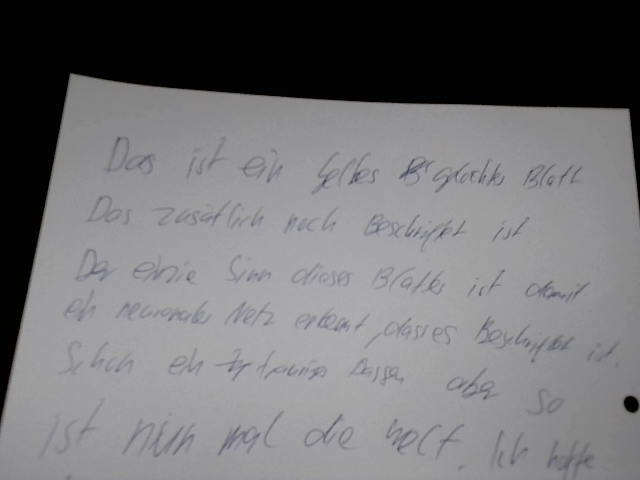 Das ist ein gelbes gelochtes Blatt
Das zusätlich noch Beschriftet ist
Der einzie Sinn dieses Blattes ist damit
ein neuronales Netz erkennt, dass es Beschriftet ist.
Schon ein trauriges aber so
ist nun mal die welt. Ich hoffe